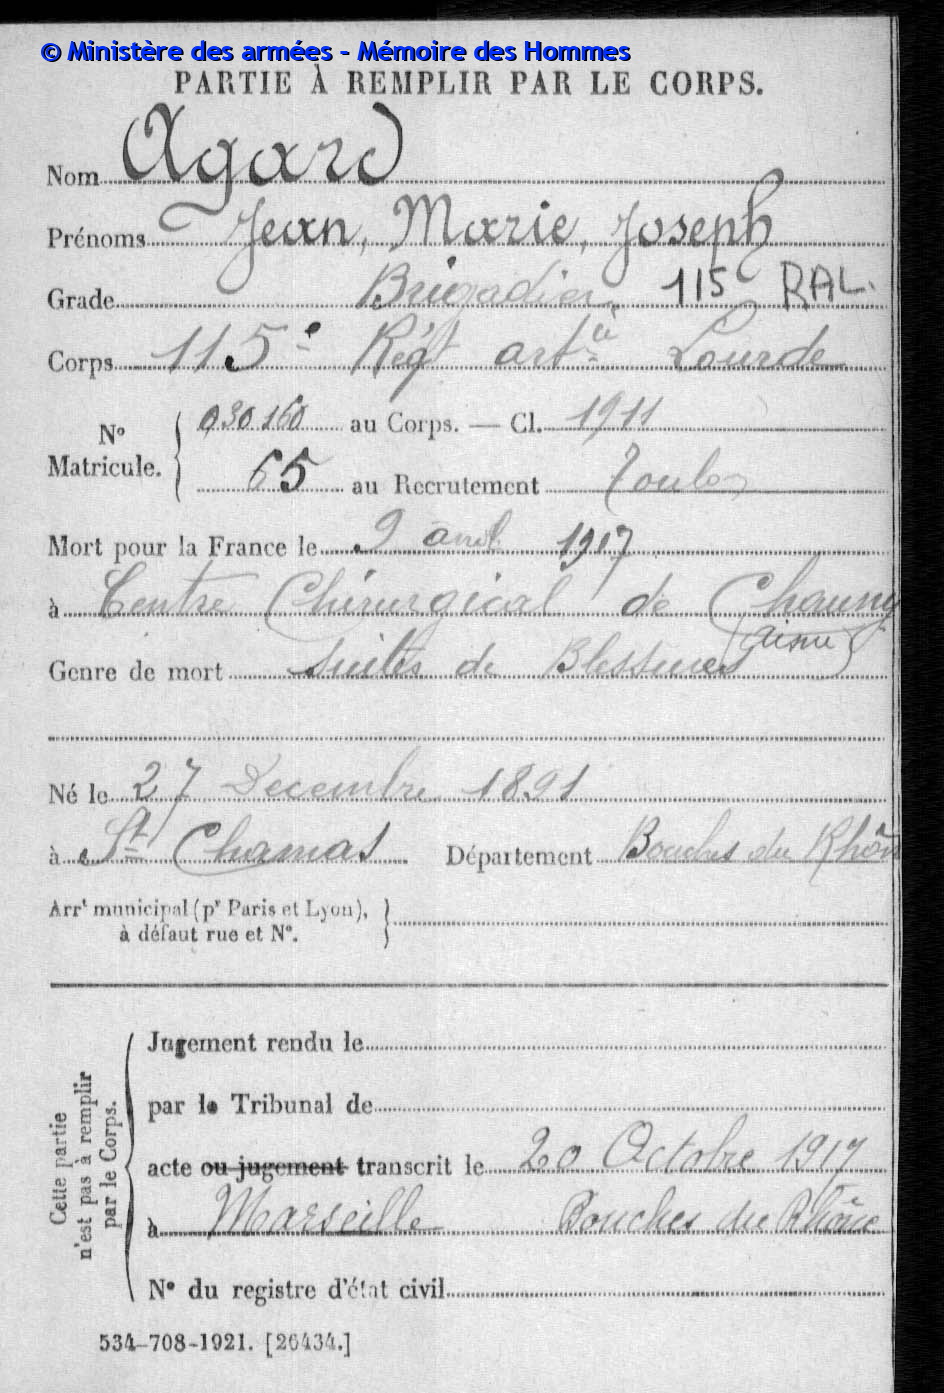 © Ministère des armées - Mémoire des Hommes
PARTIE À REMPLIR PAR LE CORPS.
Nom Agard
Prénoms Jean, Marie, Joseph
Grade Brigadier 115 RAL.
Corps 115e Régt artie Lourde
No Matricule. 030160 au Corps. — Cl. 1911
65 au Recrutement Toulon
Mort pour la France le 9 août 1917
à Centre Chirurgical de Chauny
(Aisne)
Genre de mort suites de Blessures
Né le 27 Decembre 1891
à St Chamas Département Bouches du Rhône
Arrt municipal (pr Paris et Lyon),
à défaut rue et No.
Cette partie
n'est pas à remplir
par le Corps.
Jugement rendu le
par le Tribunal de
acte ou jugement transcrit le 20 Octobre 1917
à Marseille Bouches du Rhône
No du registre d'état civil
534-708-1921. [26434.]